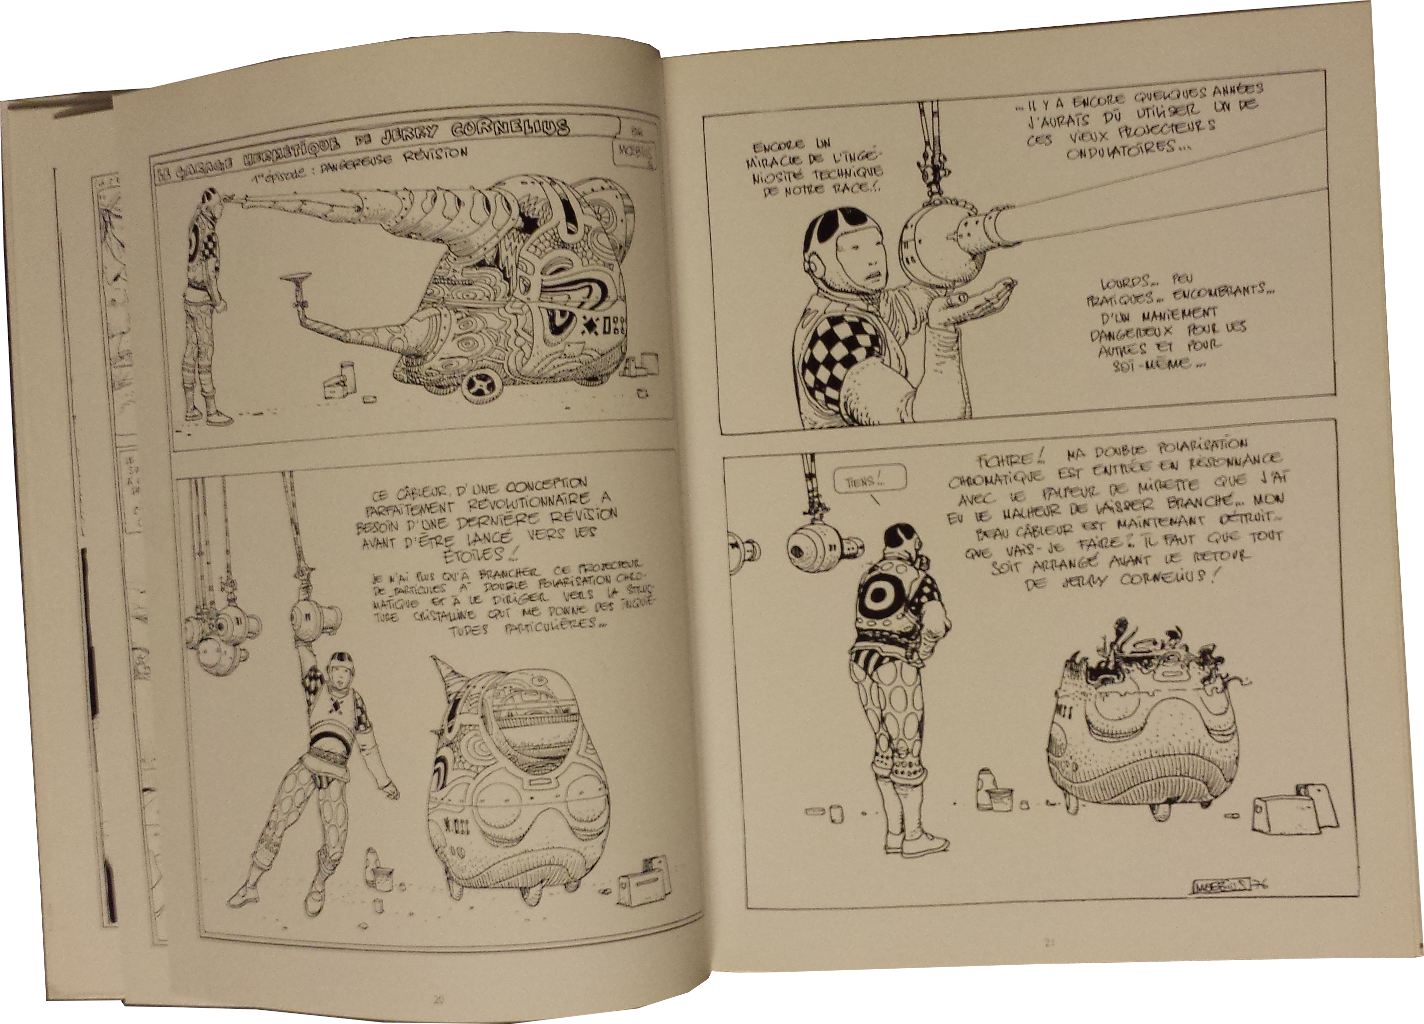 LE GARAGE HERMÉTIQUE DE JERRY CORNELIUS
PAR
MOEBIUS
1er épisode : DANGEREUSE RÉVISION
CE CÂBLEUR D'UNE CONCEPTION
PARFAITEMENT RÉVOLUTIONNAIRE A
BESOIN D'UNE DERNIÈRE RÉVISION
AVANT D'ÊTRE LANCÉ VERS LES
ÉTOILES !
JE N'AI PLUS QU'À BRANCHER CE PROJECTEUR
DE PARTICULES À DOUBLE POLARISATION CHRO-
MATIQUE ET À LE DIRIGER VERS LA STRUC-
TURE CRISTALLINE QUI ME DONNE DES INQUIÉ-
TUDES PARTICULIÈRES...
20
ENCORE UN
MIRACLE DE L'INGÉ-
NIOSITÉ TECHNIQUE
DE NOTRE RACE !..
... IL Y A ENCORE QUELQUES ANNÉES
J'AURAIS DÛ UTILISER UN DE
CES VIEUX PROJECTEURS
ONDULATOIRES...
LOURDS... PEU
PRATIQUES... ENCOMBRANTS...
D'UN MANIEMENT
DANGEREUX POUR LES
AUTRES ET POUR
SOI-MÊME...
TIENS !..
FICHTRE !.. MA DOUBLE POLARISATION
CHROMATIQUE EST ENTRÉE EN RÉSONNANCE
AVEC LE PALPEUR DE MIRETTE QUE J'AI
EU LE MALHEUR DE LAISSER BRANCHÉ... MON
BEAU CÂBLEUR EST MAINTENANT DÉTRUIT...
QUE VAIS-JE FAIRE ? IL FAUT QUE TOUT
SOIT ARRANGÉ AVANT LE RETOUR
DE JERRY CORNELIUS !
MOEBIUS 76
21